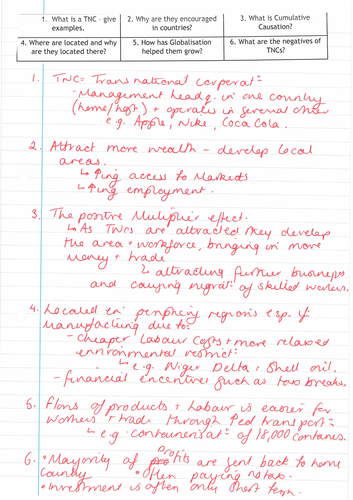 1. What is a TNC – give examples.
2. Why are they encouraged in countries?
3. What is Cumulative Causation?
4. Where are located and why are they located there?
5. How has Globalisation helped them grow?
6. What are the negatives of TNCs?
1. TNC = Transnational corporat=
- Management headq. in one country
(home/host) + operates in several other
e.g. Apple, Nike, Coca Cola.
2. Attract more wealth - develop local
areas.
↳ ↑ing access to Markets
↳ ↑ing employment.
3. The positive Multiplier effect.
↳ As TNCs are attracted they develop
the area + workforce, bringing in more
Money + trade
↳ attracting further business
and causing migrat= of skilled workers.
4. Located in periphery regions esp. if
Manufacturing due to:
- cheaper labour costs + more relaxed
environmental restrict=
↳ e.g. Niger Delta + Shell oil.
- financial incentives such as tax breaks.
5. Flows of products + labour is easier for
workers + trade through ↑ed transport=
↳ e.g. containerisat= of 18,000 containers.
6. • Majority of profits are sent back to home
country • Often paying no tax.
• Investment is often only short term.